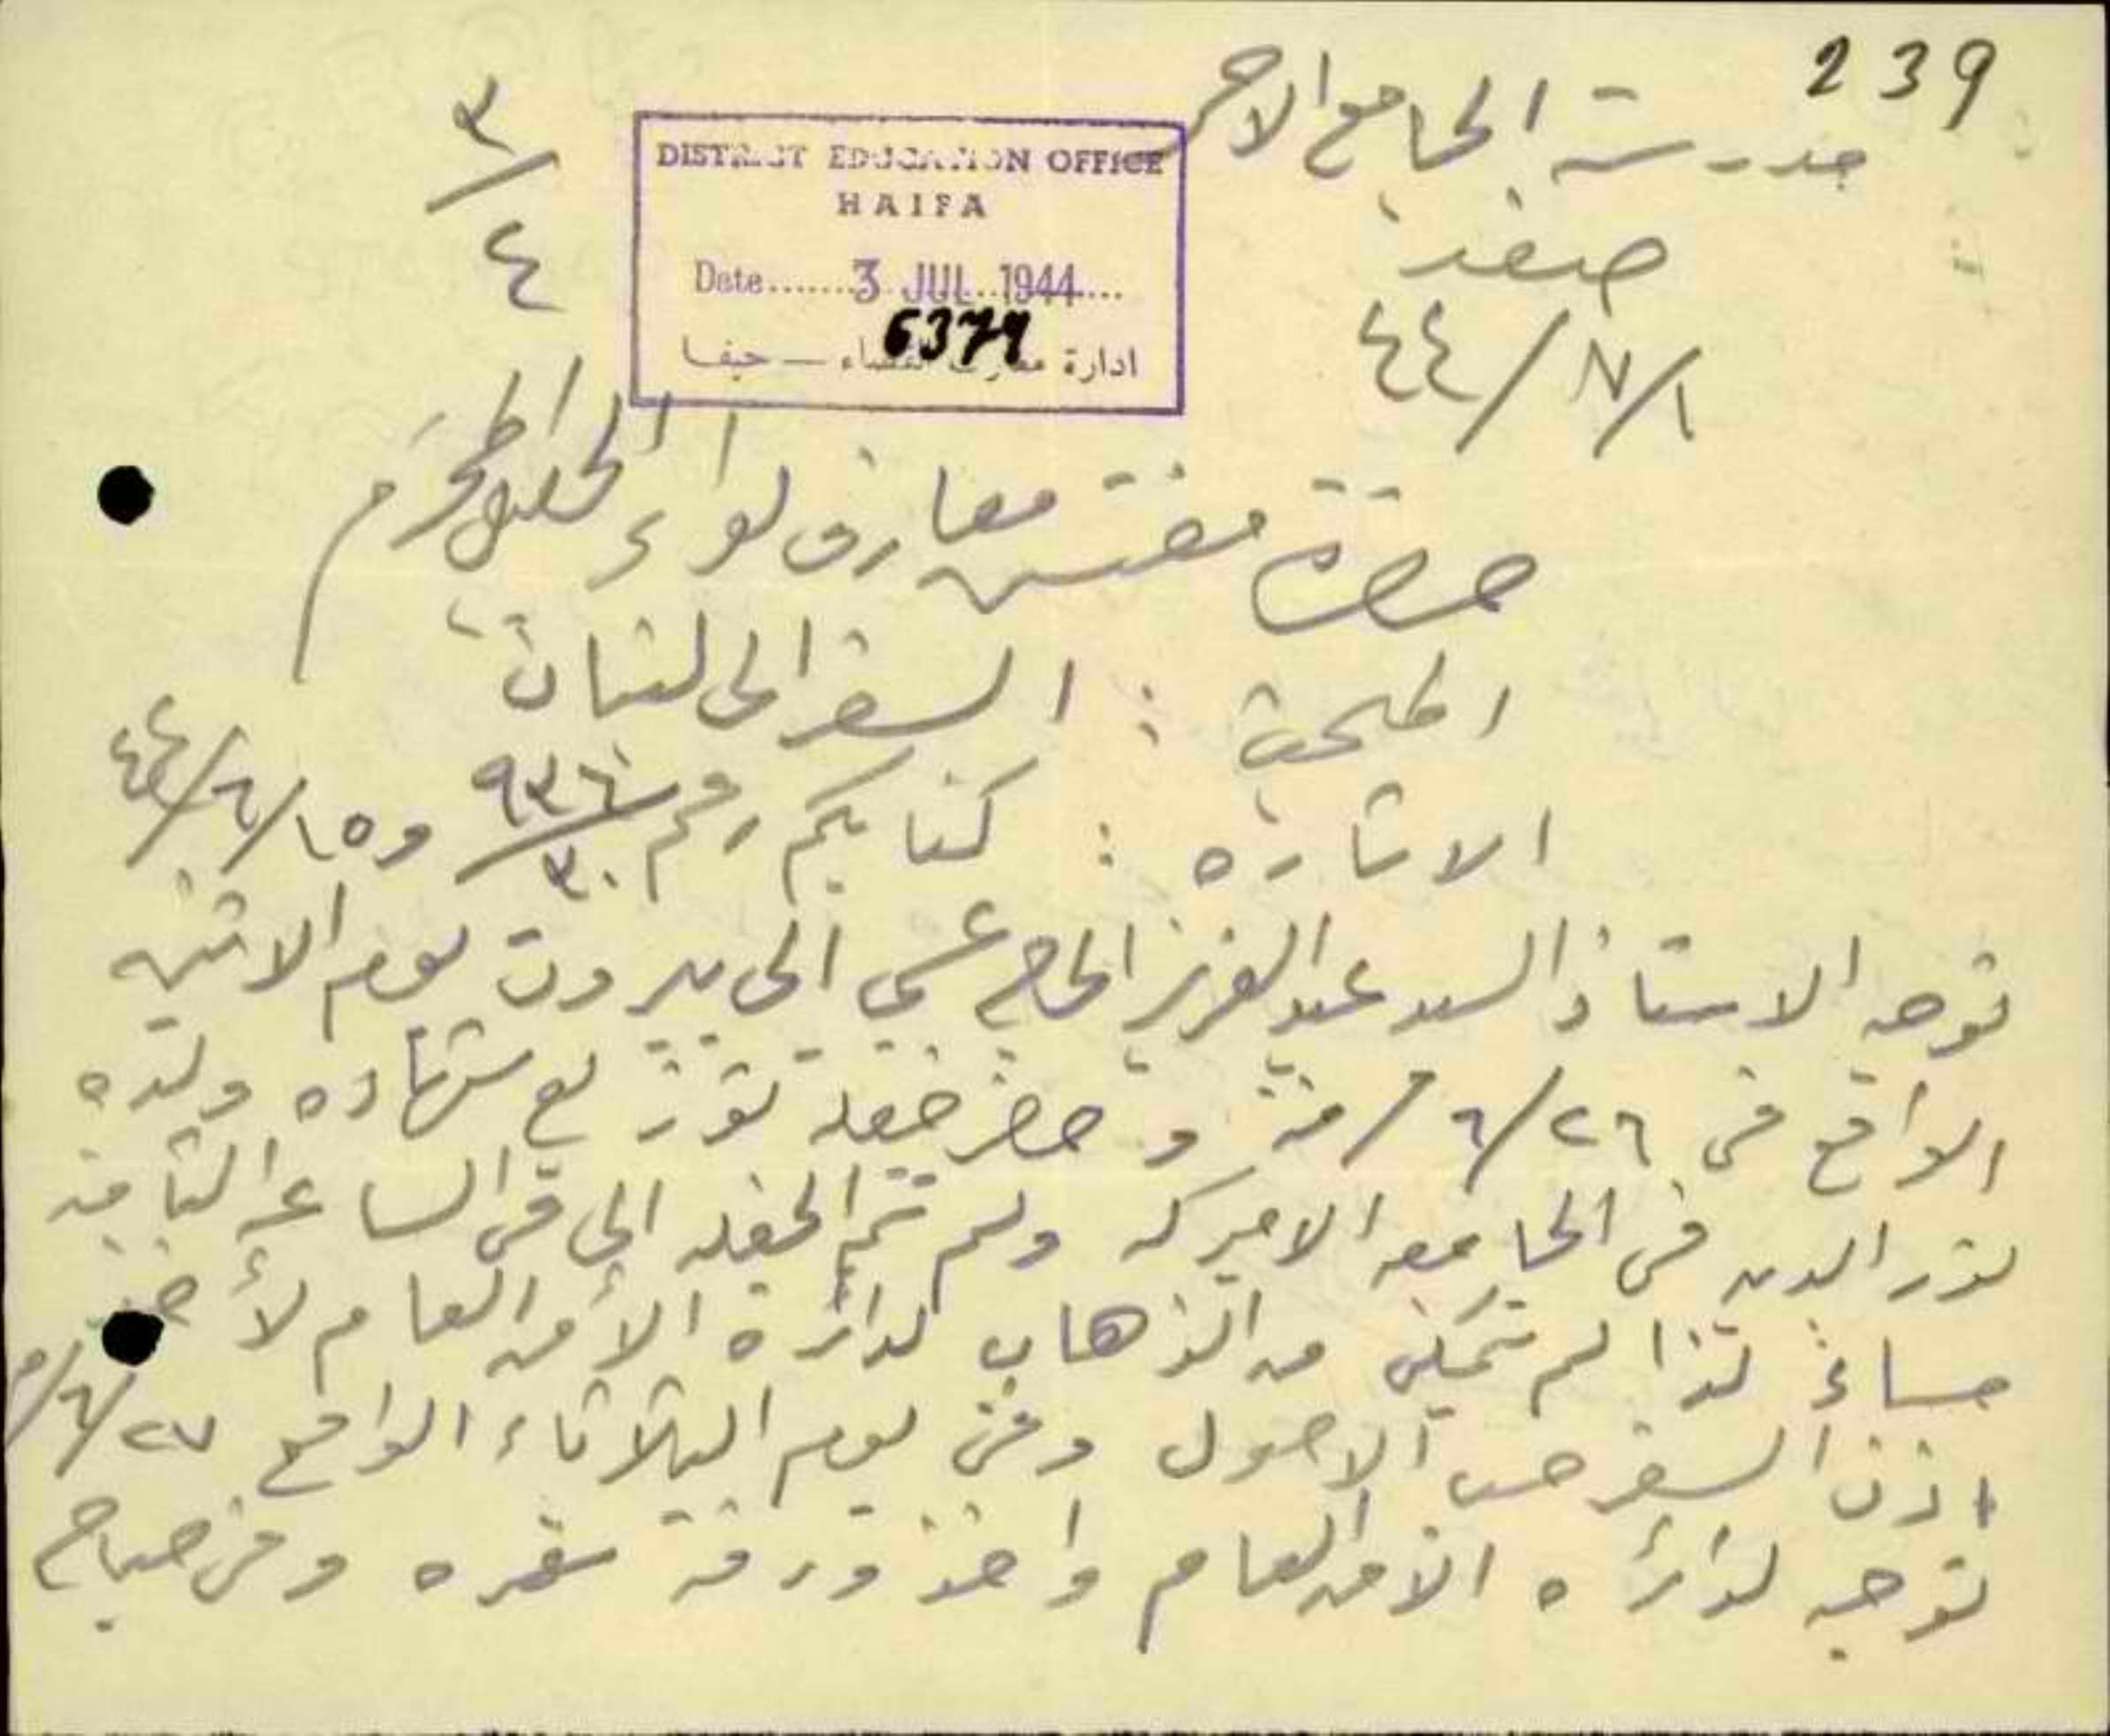 239
مدرسة الجامع الاحمر
صفد
٤٤/٧/١
٣/٤
DISTRICT EDUCATION OFFICE
HAIFA
Date.......3 JUL 1944...
6379
ادارة معارف القضاء — حيفا
حضرة مفتش معارف لواء الجليل المحترم
المبحث : السفر الى لبنان
الاشاره : كتابكم رقم ٩٣٦/٣٠ و ٤٤/٦/١٥
توجه الاستاذ السيد عبد العزيز الحاج عيسى الى بيروت يوم الاثنين
الواقع في ٦/٢٦/ منه و حضر حفلة توزيع شهاده ولده
نور الدين في الجامعه الاميركيه ولم تتم الحفله الى في الساعه الثامنه
مساءً لذا لم يتمكن من الذهاب لدائرة الأمن العام لأخذ
اذن السفر حسب الاصول وفي يوم الثلاثاء الواقع ٦/٢٧/
توجه لدائره الامن العام واخذ ورقة سفره وفي صباح